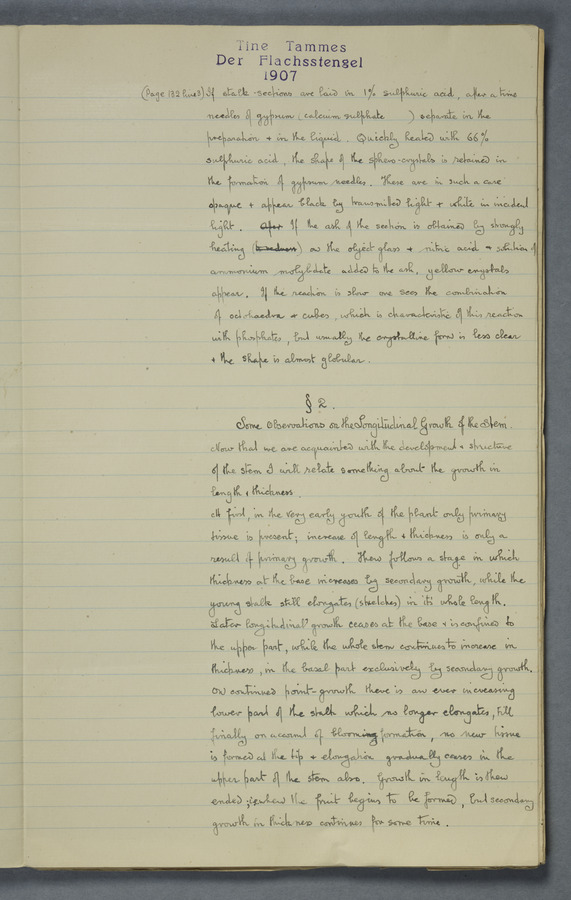 Tine Tammes
Der Flachsstengel
1907
(Page 132 line 3) If stalk-sections are laid in 1% sulphuric acid, after a time
needles of gypsum (calcium sulphate ) separate in the
preparation + in the liquid. Quickly heated with 66%
sulphuric acid, the shape of the sphero-crystals is retained in
the formation of gypsum needles. These are in such a case
opaque + appear black by transmitted light + white in incident
light. After If the ash of the section is obtained by strongly
heating ( ) on the object glass + nitric acid - solution of
ammonium molybdate added to the ash, yellow crystals
appear. If the reaction is slow one sees the combination
of octohaedra + cubes, which is characteristic of this reaction
with phosphates, but usually the crystalline form is less clear
+ the shape is almost globular.
§ 2.
Some Observations on the Longitudinal Growth of the Stem.
Now that we are acquainted with the development + structure
of the stem I will relate something about the growth in
length + thickness.
At first, in the very early youth of the plant only primary
tissue is present; increase of length + thickness is only a
result of primary growth. Then follows a stage in which
thickness at the base increases by secondary growth, while the
young stalk still elongates (stretches) in its whole length.
Later longitudinal growth ceases at the base + is confined to
the upper part, while the whole stem continues to increase in
thickness, in the basal part exclusively by secondary growth.
On continued point-growth there is an ever increasing
lower part of the stalk which no longer elongates, till
finally on account of blooming formation, no new tissue
is formed at the tip + elongation gradually ceases in the
upper part of the stem also. Growth in length is then
ended, when the fruit begins to be formed, but secondary
growth in thickness continues for some time.